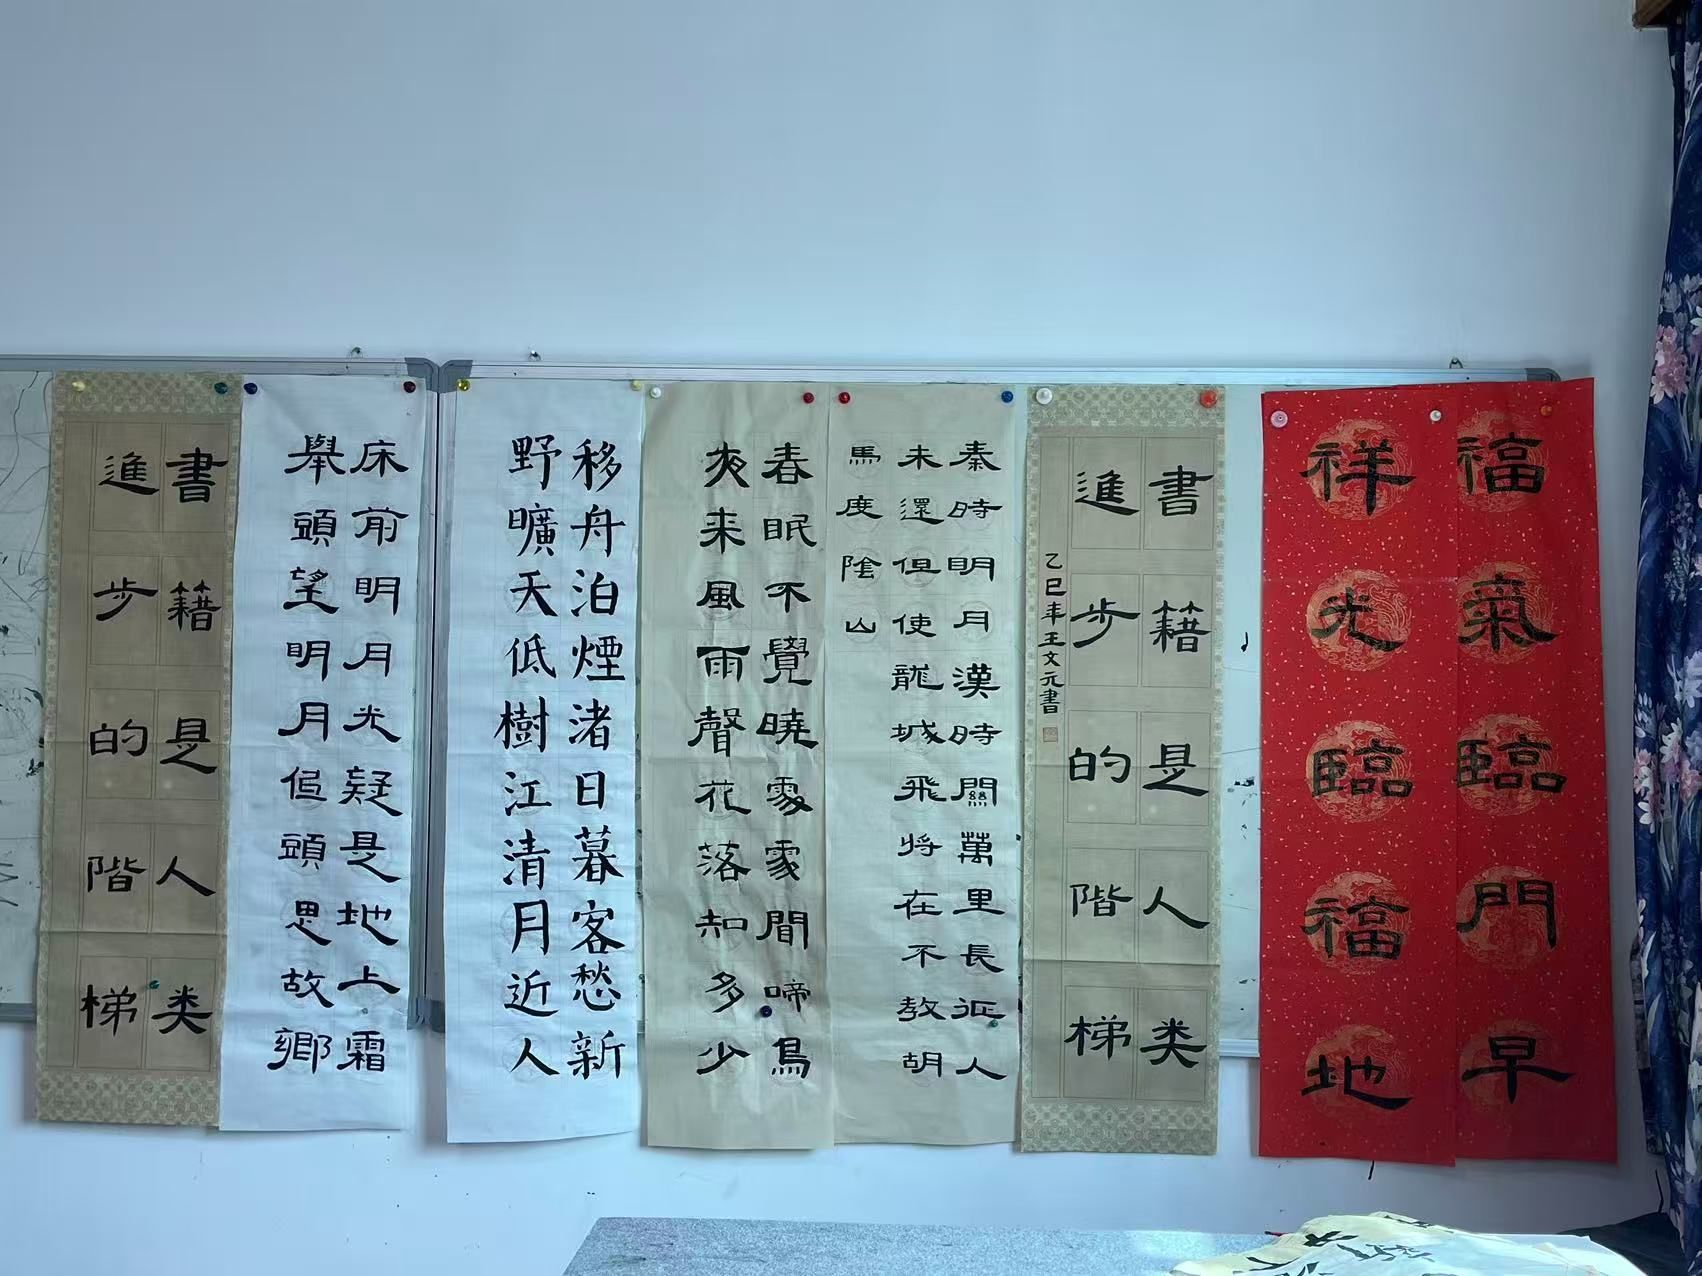 福氣臨門早
祥光臨福地
書籍是人类
進步的階梯
乙巳年王文元書
秦時明月漢時關萬里長征人
未還但使龍城飛將在不教胡
馬度陰山
春眠不覺曉處處聞啼鳥
夜来風雨聲花落知多少
移舟泊煙渚日暮客愁新
野曠天低樹江清月近人
床前明月光疑是地上霜
舉頭望明月低頭思故鄉
書籍是人类
進步的階梯